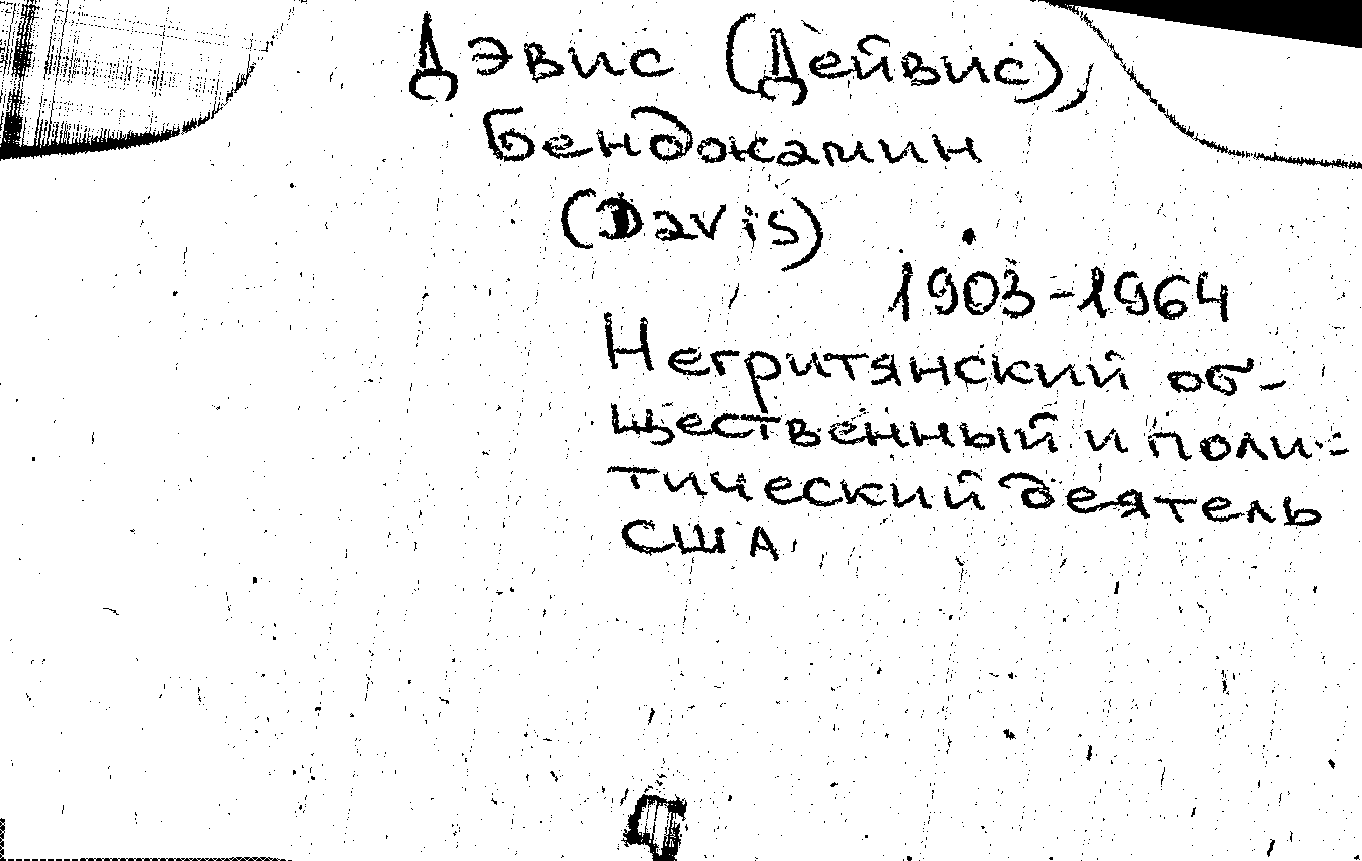 Дэвис (Дейвис),
Бенджамин
(Davis)
1903-1964
Негритянский об-
щественный и поли-
тический деятель
США